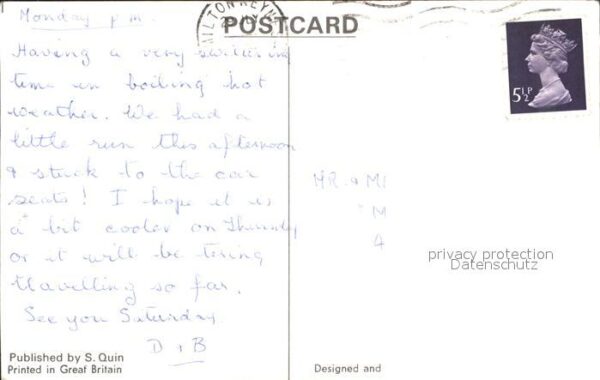 Monday pm.
POSTCARD
MILTON KEYN
Having a very
time in boiling hot
weather. We had a
little run this afternoon
& stuck to the car
seats! I hope it is
a bit cooler on Thursday
or it will be tiring
travelling so far.
See you Saturday.
D & B
5½P
MR & M
M
4
privacy protection
Datenschutz
Published by S. Quin
Printed in Great Britain
Designed and